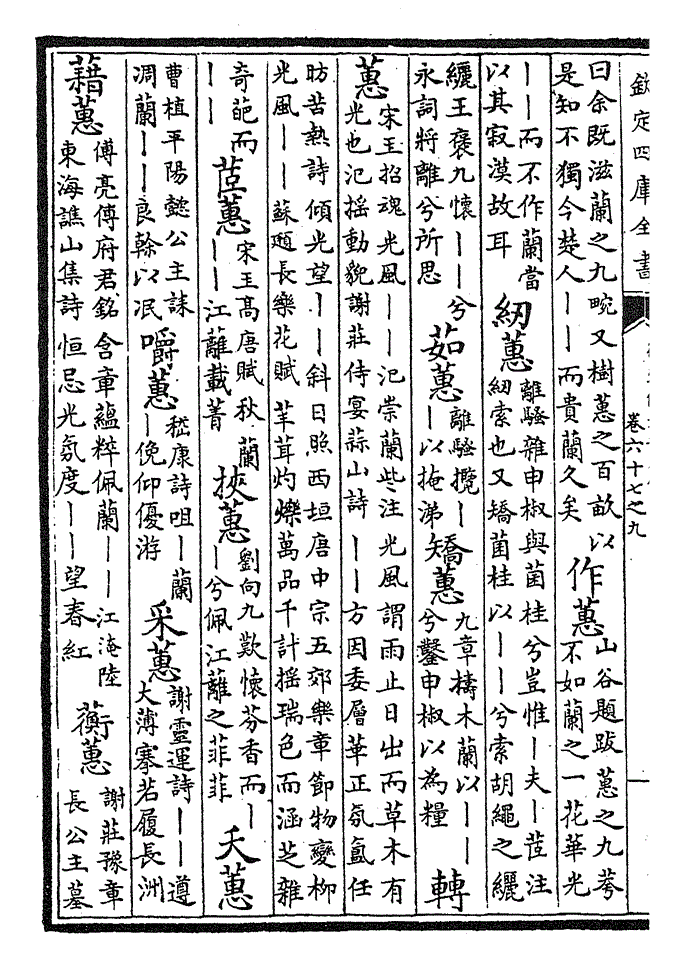 欽定四庫全書
卷六十七之九
曰余既滋蘭之九畹又樹蕙之百畝以
是知不獨今楚人丨丨而貴蘭久矣
作蕙
山谷題跋蕙之九蕚
不如蘭之一花華光
丨丨而不作蘭當
以其寂漠故耳
紉蕙
離騷雜申椒與菌桂兮豈惟丨夫丨茝注
紉索也又矯菌桂以丨丨兮索胡繩之纚
纚王褒九懷丨丨兮
永詞將離兮所思
茹蕙
離騷攬丨
丨以掩涕
矯蕙
九章擣木蘭以丨丨
兮鑿申椒以為糧
轉
蕙
宋玉招魂光風丨丨氾崇蘭些注光風謂雨止日出而草木有
光也氾搖動貌謝莊侍宴蒜山詩丨丨方因委層華正氛氳任
昉苦熱詩傾光望丨丨斜日照西垣唐中宗五郊樂章節物變柳
光風丨丨蘇頲長樂花賦芊茸灼爍萬品千計搖瑞色而涵芝雜
奇葩而
丨丨
茝蕙
宋玉高唐賦秋蘭
丨丨江蘺載菁
挾蕙
劉向九歎懷芬香而丨
丨兮佩江蘺之菲菲
夭蕙
曹植平陽懿公主誄
凋蘭丨丨良幹以泯
嚼蕙
嵇康詩咀丨蘭
丨俛仰優游
采蕙
謝靈運詩丨丨遵
大薄搴若履長洲
藉蕙
傅亮傅府君銘含章蘊粹佩蘭丨丨江淹陸
東海譙山集詩恒忌光氛度丨丨望春紅
蘅蕙
謝莊豫章
長公主墓